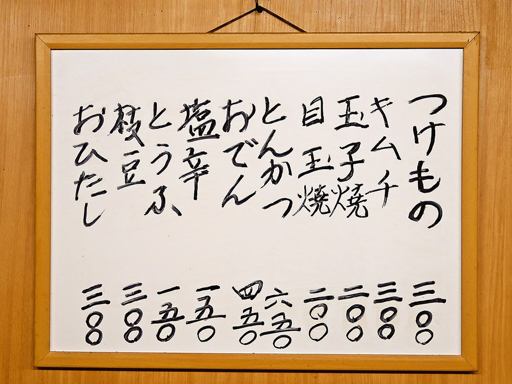 つけもの 三〇〇
キムチ 三〇〇
玉子焼 二〇〇
目玉焼 二〇〇
とんかつ 六五〇
おでん 四五〇
塩辛 一五〇
とうふ 一五〇
枝豆 三〇〇
おひたし 三〇〇